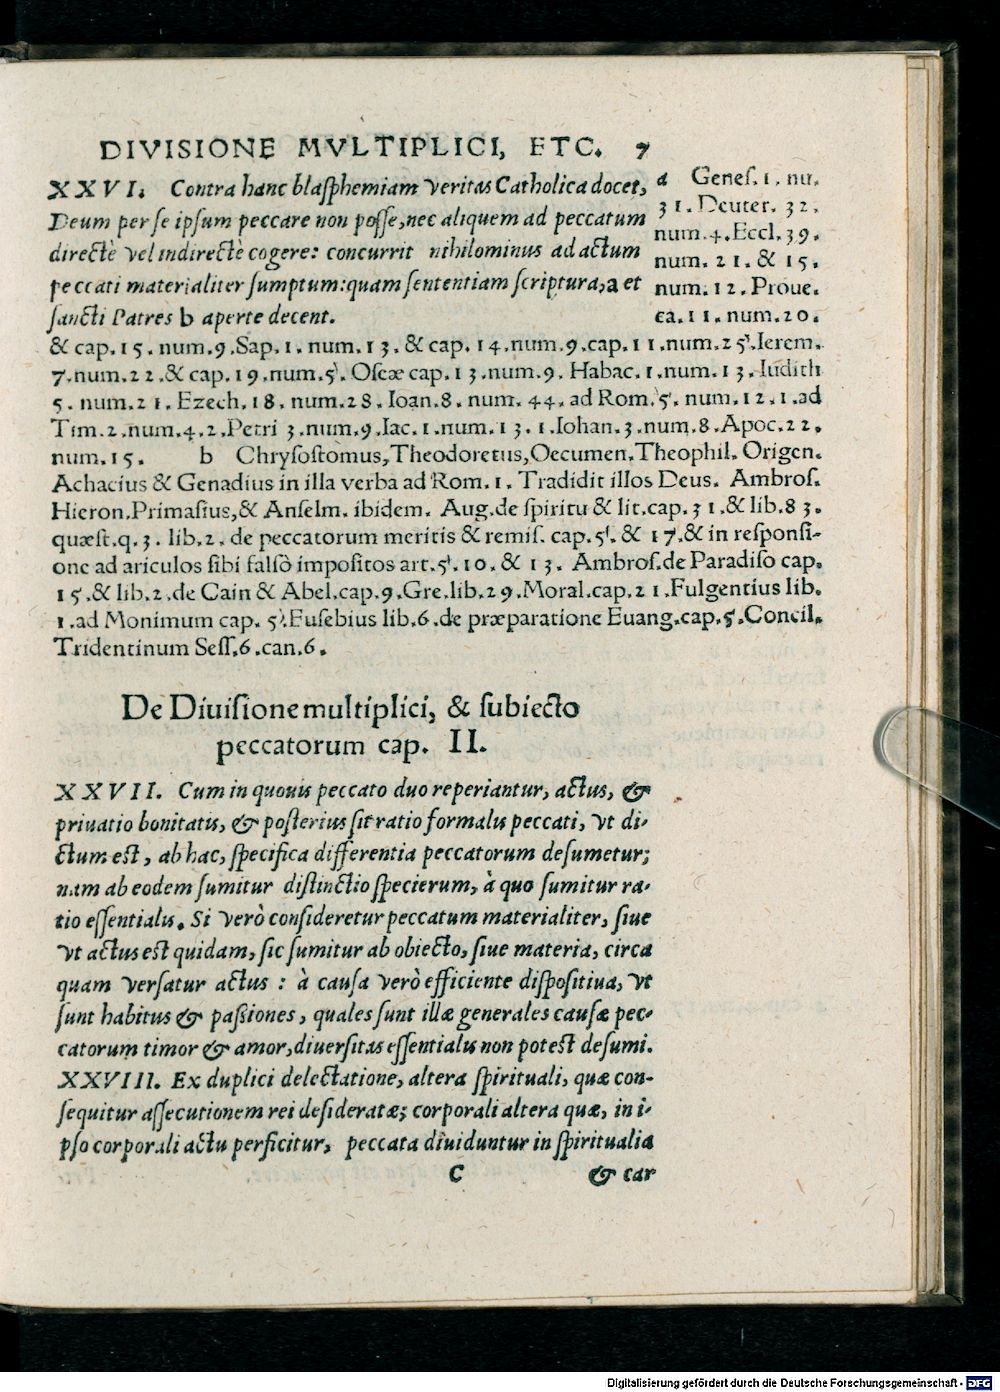 DIVISIONE MVLTIPLICI, ETC. 7
XXVI. Contra hanc blasphemiam veritas Catholica docet,
Deum per se ipsum peccare non posse, nec aliquem ad peccatum
directè vel indirectè cogere: concurrit nihilominus ad actum
peccati materialiter sumptum: quam sententiam scriptura, a et
sancti Patres b aperte decent.
a Genes. 1. nu.
31. Deuter. 32.
num. 4. Eccl. 39.
num. 21. & 15.
num. 12. Proue.
ca. 11. num. 20.
& cap. 15. num. 9. Sap. 1. num. 13. & cap. 14. num. 9. cap. 11. num. 25. Ierem.
7. num. 22. & cap. 19. num. 5. Oseæ cap. 13. num. 9. Habac. 1. num. 13. Iudith
5. num. 21. Ezech. 18. num. 28. Ioan. 8. num. 44. ad Rom. 5. num. 12. 1. ad
Tim. 2. num. 4. 2. Petri 3. num. 9. Iac. 1. num. 13. 1. Iohan. 3. num. 8. Apoc. 22.
num. 15. b Chrysostomus, Theodoretus, Oecumen. Theophil. Origen.
Achacius & Genadius in illa verba ad Rom. 1. Tradidit illos Deus. Ambros.
Hieron. Primasius, & Anselm. ibidem. Aug. de spiritu & lit. cap. 31. & lib. 83.
quæst. q. 3. lib. 2. de peccatorum meritis & remis. cap. 5. & 17. & in responsi-
one ad ariculos sibi falsò impositos art. 5. 10. & 13. Ambros. de Paradiso cap.
15. & lib. 2. de Cain & Abel. cap. 9. Gre. lib. 29. Moral. cap. 21. Fulgentius lib.
1. ad Monimum cap. 5. Eusebius lib. 6. de præparatione Euang. cap. 5. Concil.
Tridentinum Sess. 6. can. 6.
De Diuisione multiplici, & subiecto
peccatorum cap. II.
XXVII. Cum in quouis peccato duo reperiantur, actus, &
priuatio bonitatis, & posterius sit ratio formalis peccati, vt di-
ctum est, ab hac, specifica differentia peccatorum desumetur;
nam ab eodem sumitur distinctio specierum, à quo sumitur ra-
tio essentialis. Si verò consideretur peccatum materialiter, siue
vt actus est quidam, sic sumitur ab obiecto, siue materia, circa
quam versatur actus : à causa verò efficiente dispositiua, vt
sunt habitus & passiones, quales sunt illæ generales causæ pec-
catorum timor & amor, diuersitas essentialis non potest desumi.
XXVIII. Ex duplici delectatione, altera spirituali, quæ con-
sequitur assecutionem rei desideratæ; corporali altera quæ, in i-
pso corporali actu perficitur, peccata diuiduntur in spiritualia
C & car
Digitalisierung gefördert durch die Deutsche Forschungsgemeinschaft - DFG